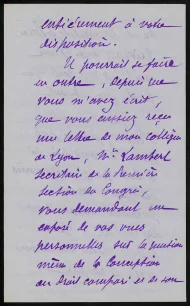 entièrement à votre
disposition.
Il pourrait se faire
en outre, depuis que
vous m'avez écrit,
que vous eussiez reçu
une lettre de mon collègue
de Lyon, Mr Lambert
secrétaire de la première
section du Congrès,
vous demandant un
exposé de vos vues
personnelles sur la question
même de la conception
du droit comparé et de son